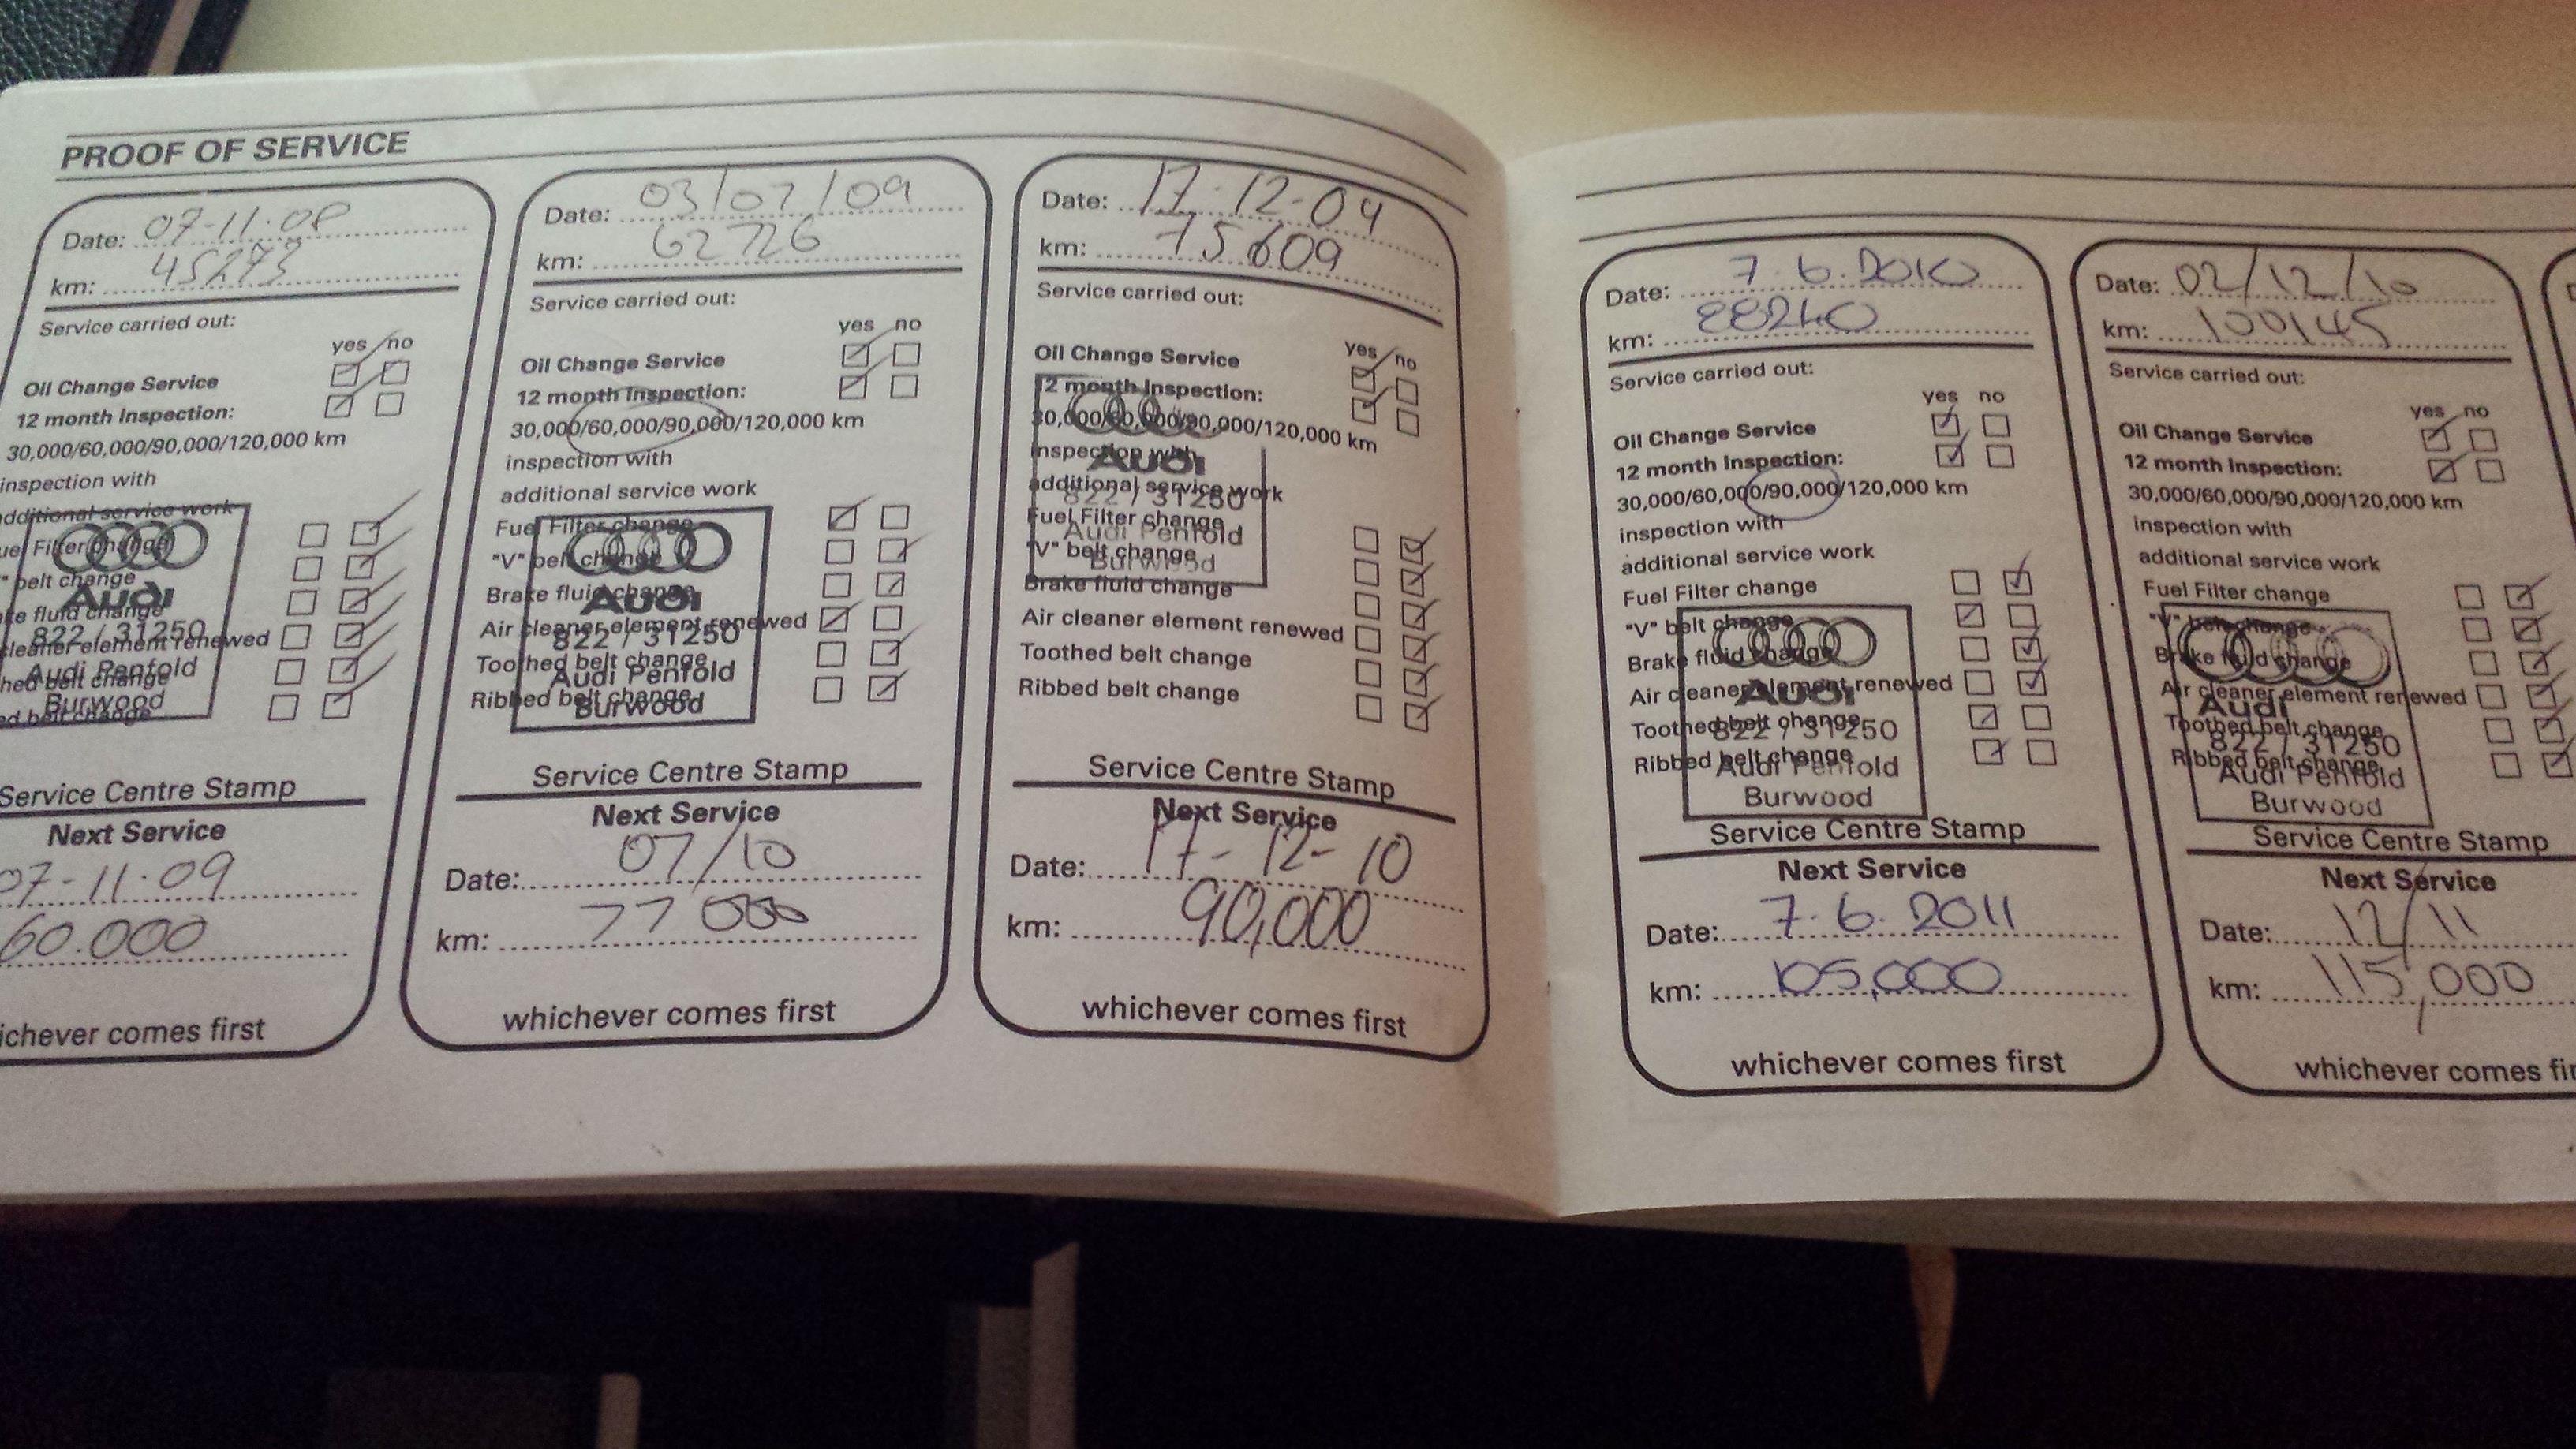 PROOF OF SERVICE
Date: 07-11-08
km: 45273
Service carried out:
yes no
Oil Change Service
12 month Inspection:
30,000/60,000/90,000/120,000 km
inspection with
additional service work
Fuel Filter change
belt change
Brake fluid change
cleaner element renewed
belt change
belt change
Audi
822 / 31250
Audi Penfold
Burwood
Service Centre Stamp
Next Service
07-11-09
60.000
whichever comes first
Date: 03/07/09
km: 62726
Service carried out:
yes no
Oil Change Service
12 month Inspection:
30,000/60,000/90,000/120,000 km
inspection with
additional service work
Fuel Filter change
"V" belt change
Brake fluid change
Air cleaner element renewed
Toothed belt change
Ribbed belt change
Audi
822 / 31250
Audi Penfold
Burwood
Service Centre Stamp
Next Service
Date: 07/10
km: 77 000
whichever comes first
Date: 17-12-09
km: 75609
Service carried out:
yes no
Oil Change Service
12 month Inspection:
30,000/60,000/90,000/120,000 km
inspection with
additional service work
Fuel Filter change
"V" belt change
Brake fluid change
Air cleaner element renewed
Toothed belt change
Ribbed belt change
Audi
822 / 31250
Audi Penfold
Burwood
Service Centre Stamp
Next Service
Date: 17-12-10
km: 90,000
whichever comes first
Date: 7.6.2010
km: 88240
Service carried out:
yes no
Oil Change Service
12 month Inspection:
30,000/60,000/90,000/120,000 km
inspection with
additional service work
Fuel Filter change
"V" belt change
Brake fluid change
Air cleaner element renewed
Toothed belt change
Ribbed belt change
Audi
822 / 31250
Audi Penfold
Burwood
Service Centre Stamp
Next Service
Date: 7.6.2011
km: 105,000
whichever comes first
Date: 02/12/10
km: 100145
Service carried out:
yes no
Oil Change Service
12 month Inspection:
30,000/60,000/90,000/120,000 km
inspection with
additional service work
Fuel Filter change
"V" belt change
Brake fluid change
Air cleaner element renewed
Toothed belt change
Ribbed belt change
Audi
822 / 31250
Audi Penfold
Burwood
Service Centre Stamp
Next Service
Date: 12/11
km: 115,000
whichever comes fir